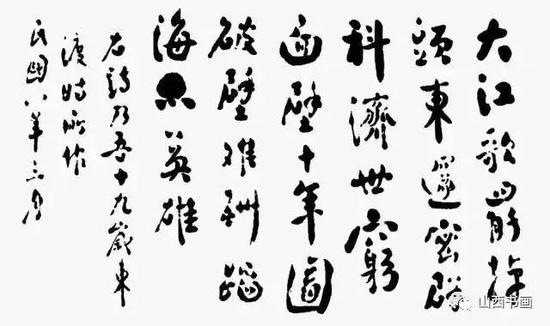 大江歌罷掉
頭東邃密群
科濟世窮
面壁十年圖
破壁難酬蹈
海亦英雄
右詩乃吾十九歲東
渡時所作
民國八年三月
山西书画